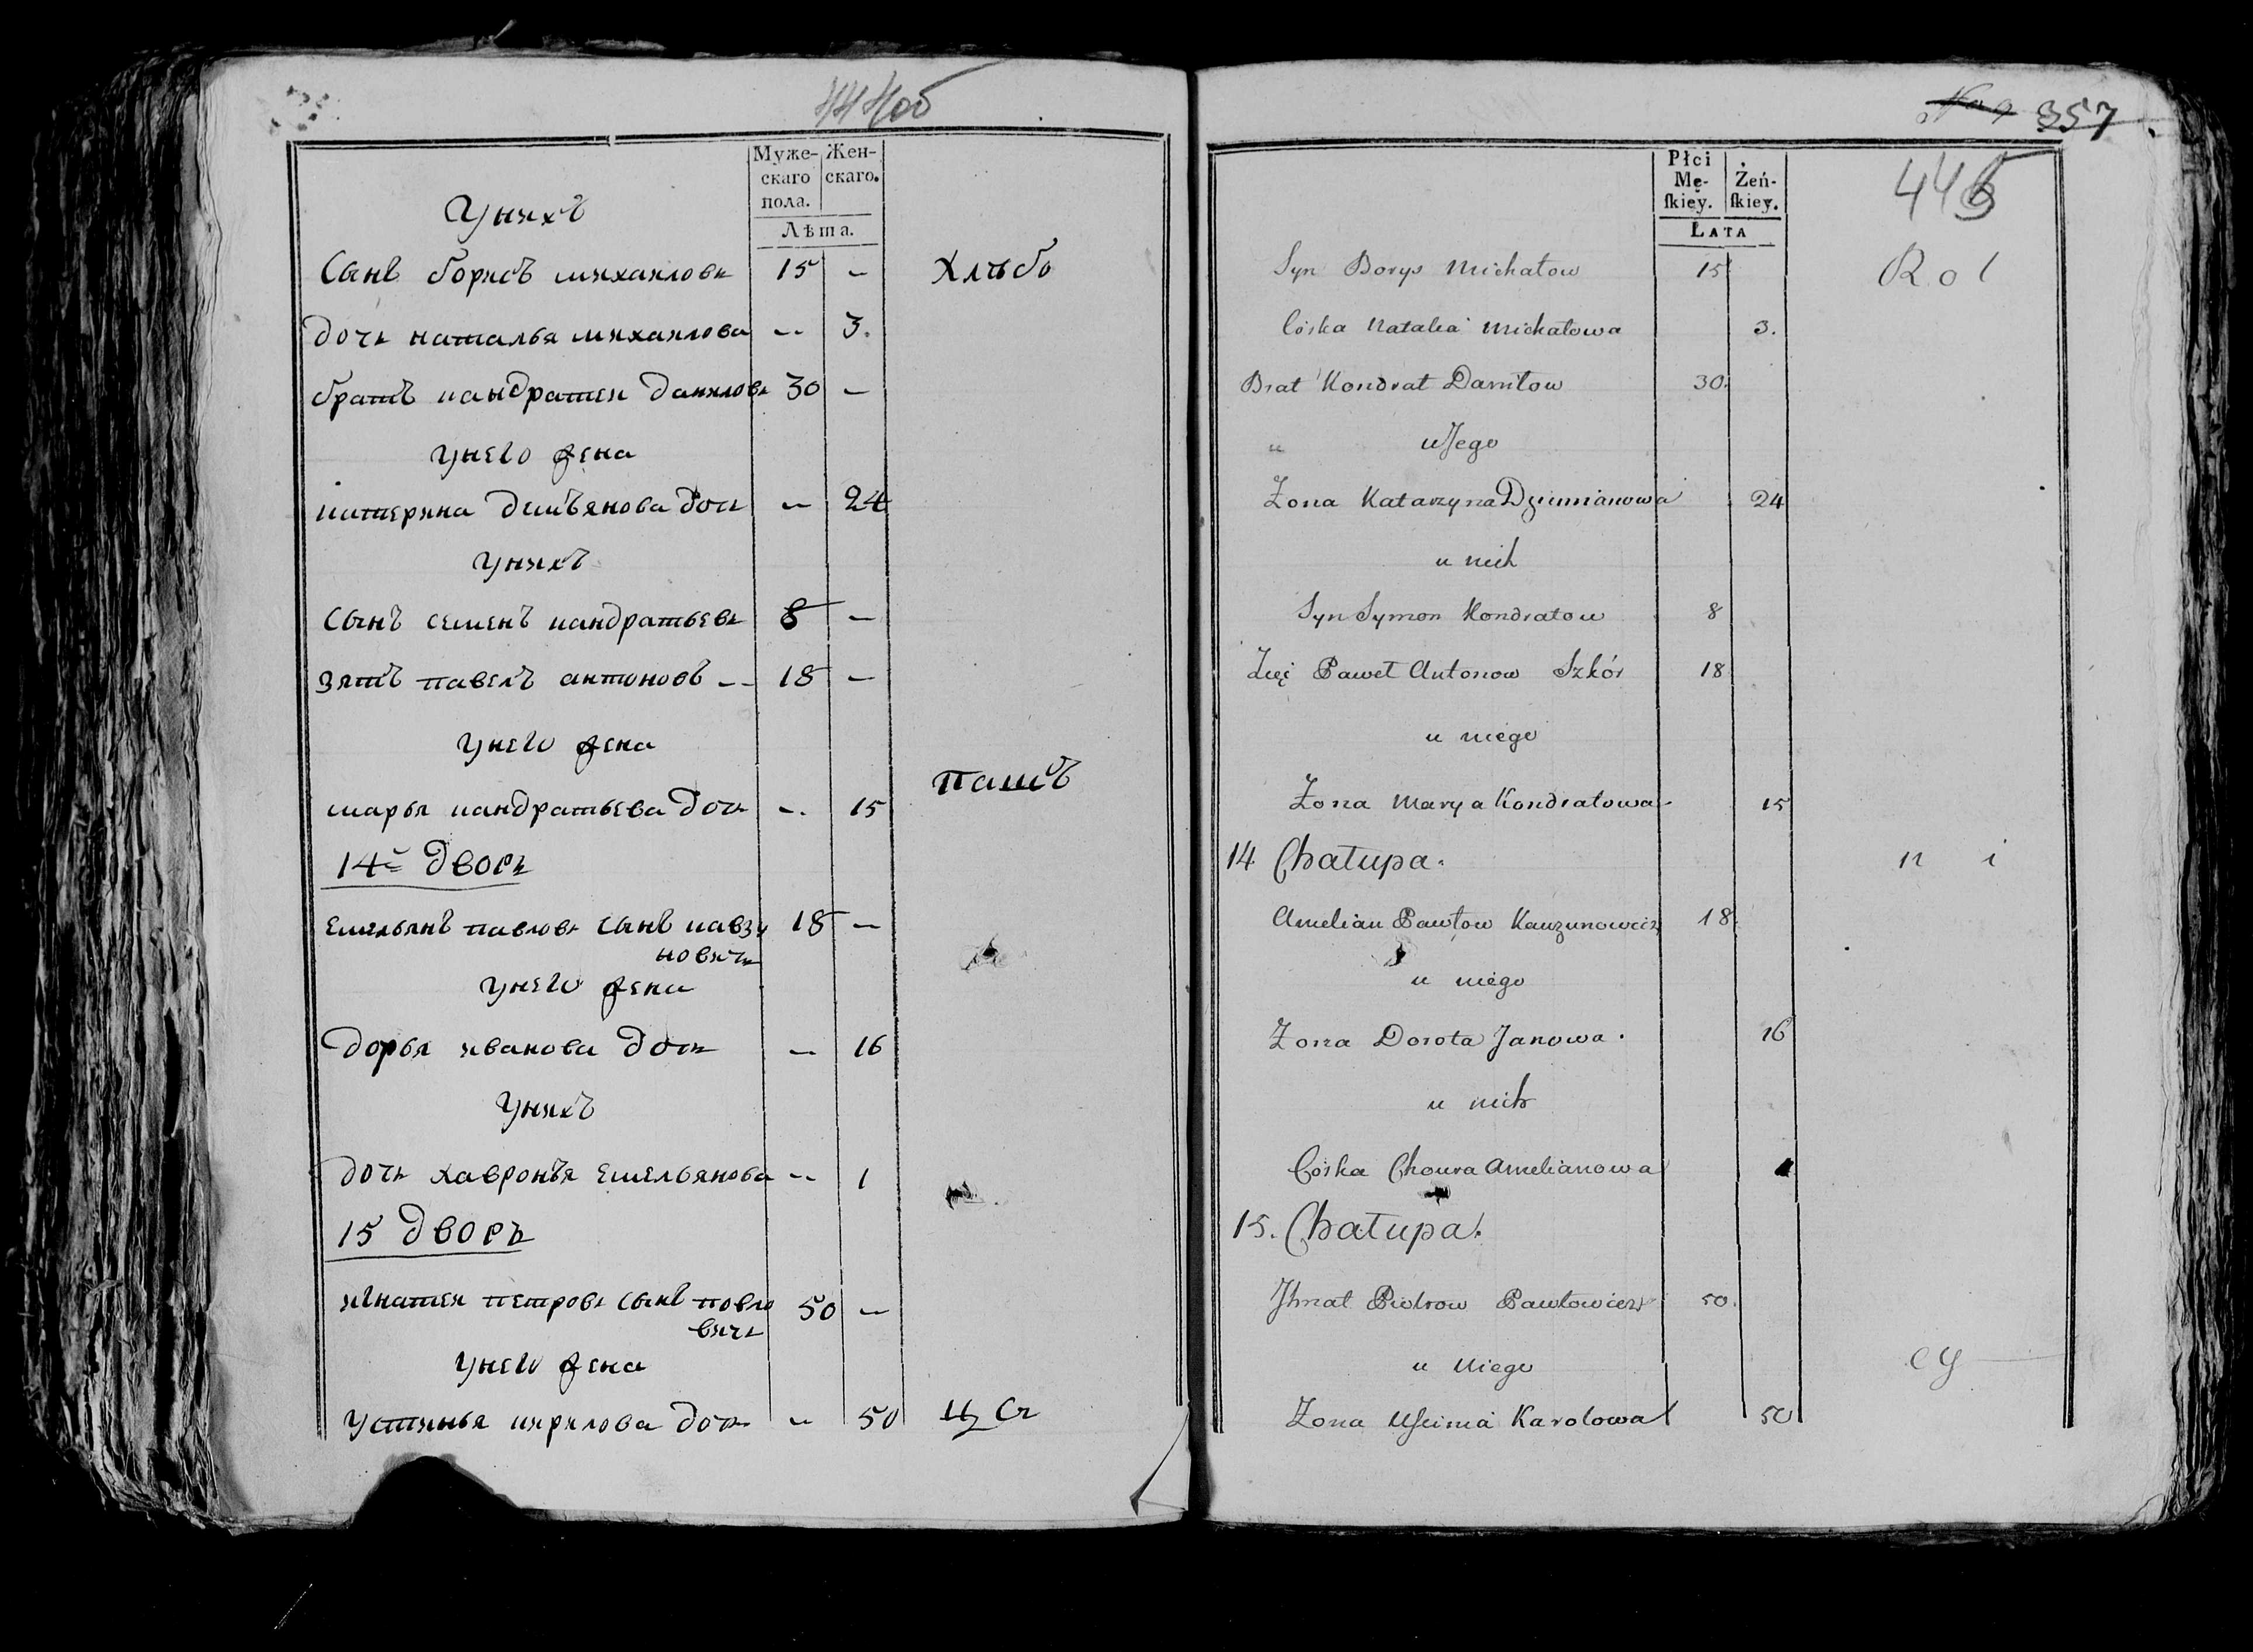 444об
Муже-
скаго
пола.
Жен-
скаго.
Лѣта.
Унихъ
Сынъ борисъ михаиловъ 15 - Хлѣбо
дочь наталья михаилова -- 3.
братъ кандратеи даниловъ 30 -
унего жена
катерина демьянова дочь - 24
унихъ
сынъ семенъ кандратьевъ 8 -
зять павелъ антоновъ -- 18 -
унего жена
пашъ
марья кандратьева дочь -. 15
14й дворъ
емельянъ павловъ сынъ кавзу
новичъ 18 -
унего жена
дорья иванова дочь - 16
унихъ
дочь хавронья емельянова -- 1
15 дворъ
игнатеи петровъ сынъ повло
вичъ 50 -
унего жена
устинья кирилова дочь - 50 цы
357
445
Płci
Mę-
ſkiey.
Żeń-
ſkiey.
LATA
Syn Borys Michałow 15 Rol
Córka Natalia Michałowa 3.
Brat Kondrat Daniłow 30.
u Jego
Żona Katarzyna Dziemianowa 24
u nich
Syn Symon Kondratow 8
Zięć Paweł Antonow Szkór 18
u niego
Żona Marya Kondratowa 15
14 Chałupa. n i
Amelian Pawłow Kauzunowicz 18.
u niego
Żona Dorota Janowa. 16
u nich
Córka Chowra Amelianowa 1
15. Chałupa.
Jhnat Piotrow Pawłowicz 50.
u niego cy
Żona Uscinia Karolowa 50